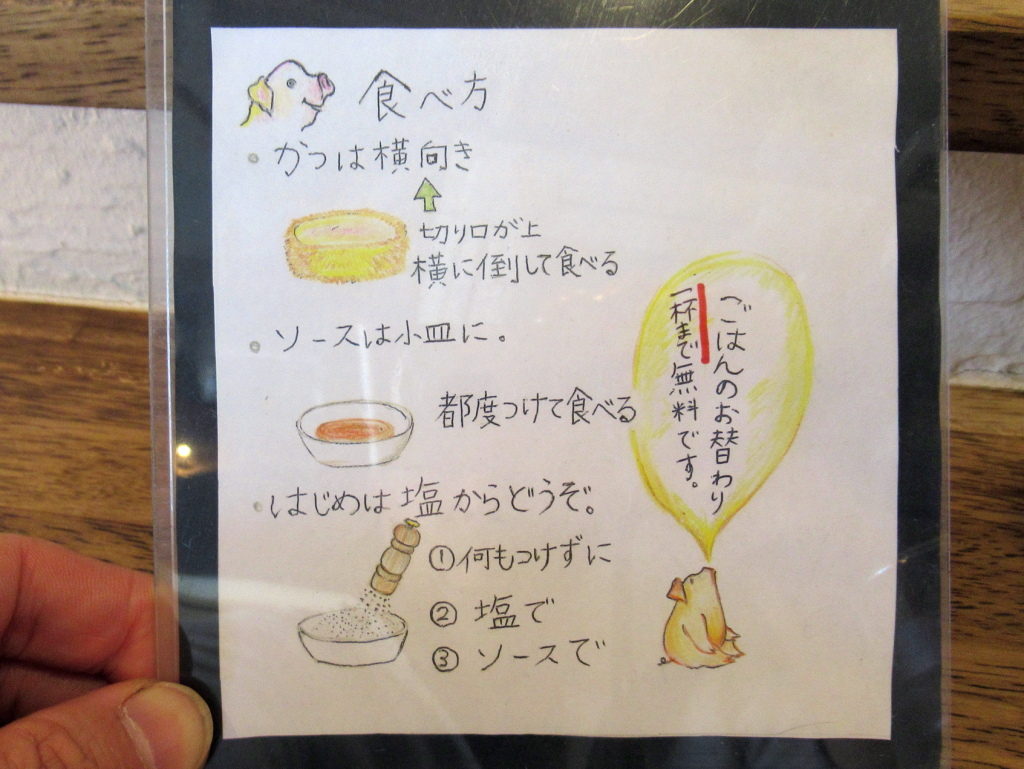 食べ方
・かつは横向き
切り口が上
横に倒して食べる
・ソースは小皿に。
都度つけて食べる
・はじめは塩からどうぞ。
①何もつけずに
②塩で
③ソースで
ごはんのお替わり
一杯まで無料です。